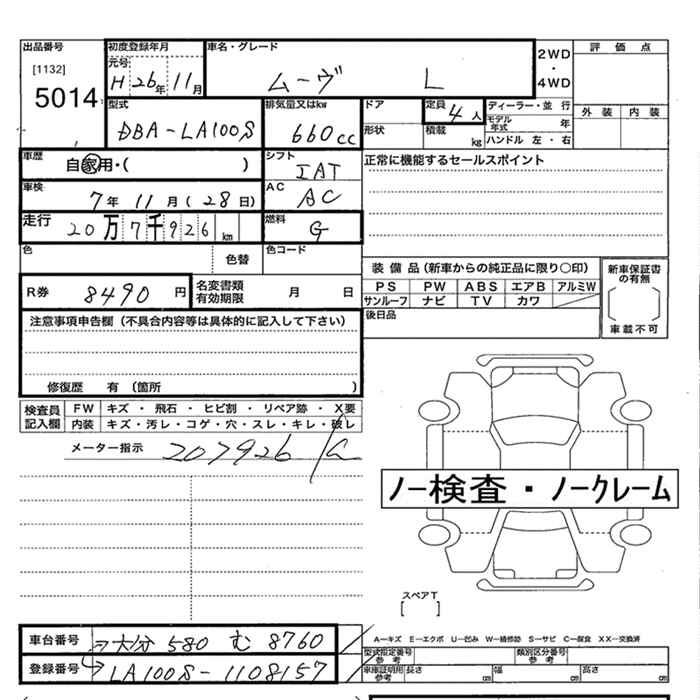 出品番号
[1132]
5014
初度登録年月
元号
H 26年 11月
車名・グレード
ムーヴ L
2WD
・
4WD
評価点
外装 内装
型式
DBA-LA100S
排気量又はkw
660cc
ドア
形状
定員
4人
積載 kg
ディーラー・並行
モデル年式 年
ハンドル 左・右
車歴
自家用・( )
シフト
IAT
正常に機能するセールスポイント
車検
7年 11月 (28日)
AC
AC
走行
20万7千926km
燃料
G
色
色替
色コード
装備品 (新車からの純正品に限り○印)
PS PW ABS エアB アルミW
サンルーフ ナビ TV カワ
新車保証書の有無
車載不可
R券 8490円
名変書類
有効期限 月 日
後日品
注意事項申告欄 (不具合内容等は具体的に記入して下さい)
修復歴 有 (箇所 )
検査員
記入欄
FW キズ ・ 飛石 ・ ヒビ割 ・ リペア跡 ・ X要
内装 キズ・汚レ・コゲ・穴・スレ・キレ・破レ
メーター指示 207926
ノー検査・ノークレーム
スペアT
[ ]
車台番号 → 大分 580 む 8760
登録番号 LA100S-1108157
A－キズ E－エクボ U－凹み W－補修跡 S－サビ C－腐食 XX－交換済
型式指定番号
参考
類別区分番号
参考
車庫証明用
参考
長さ cm 幅 cm 高さ cm